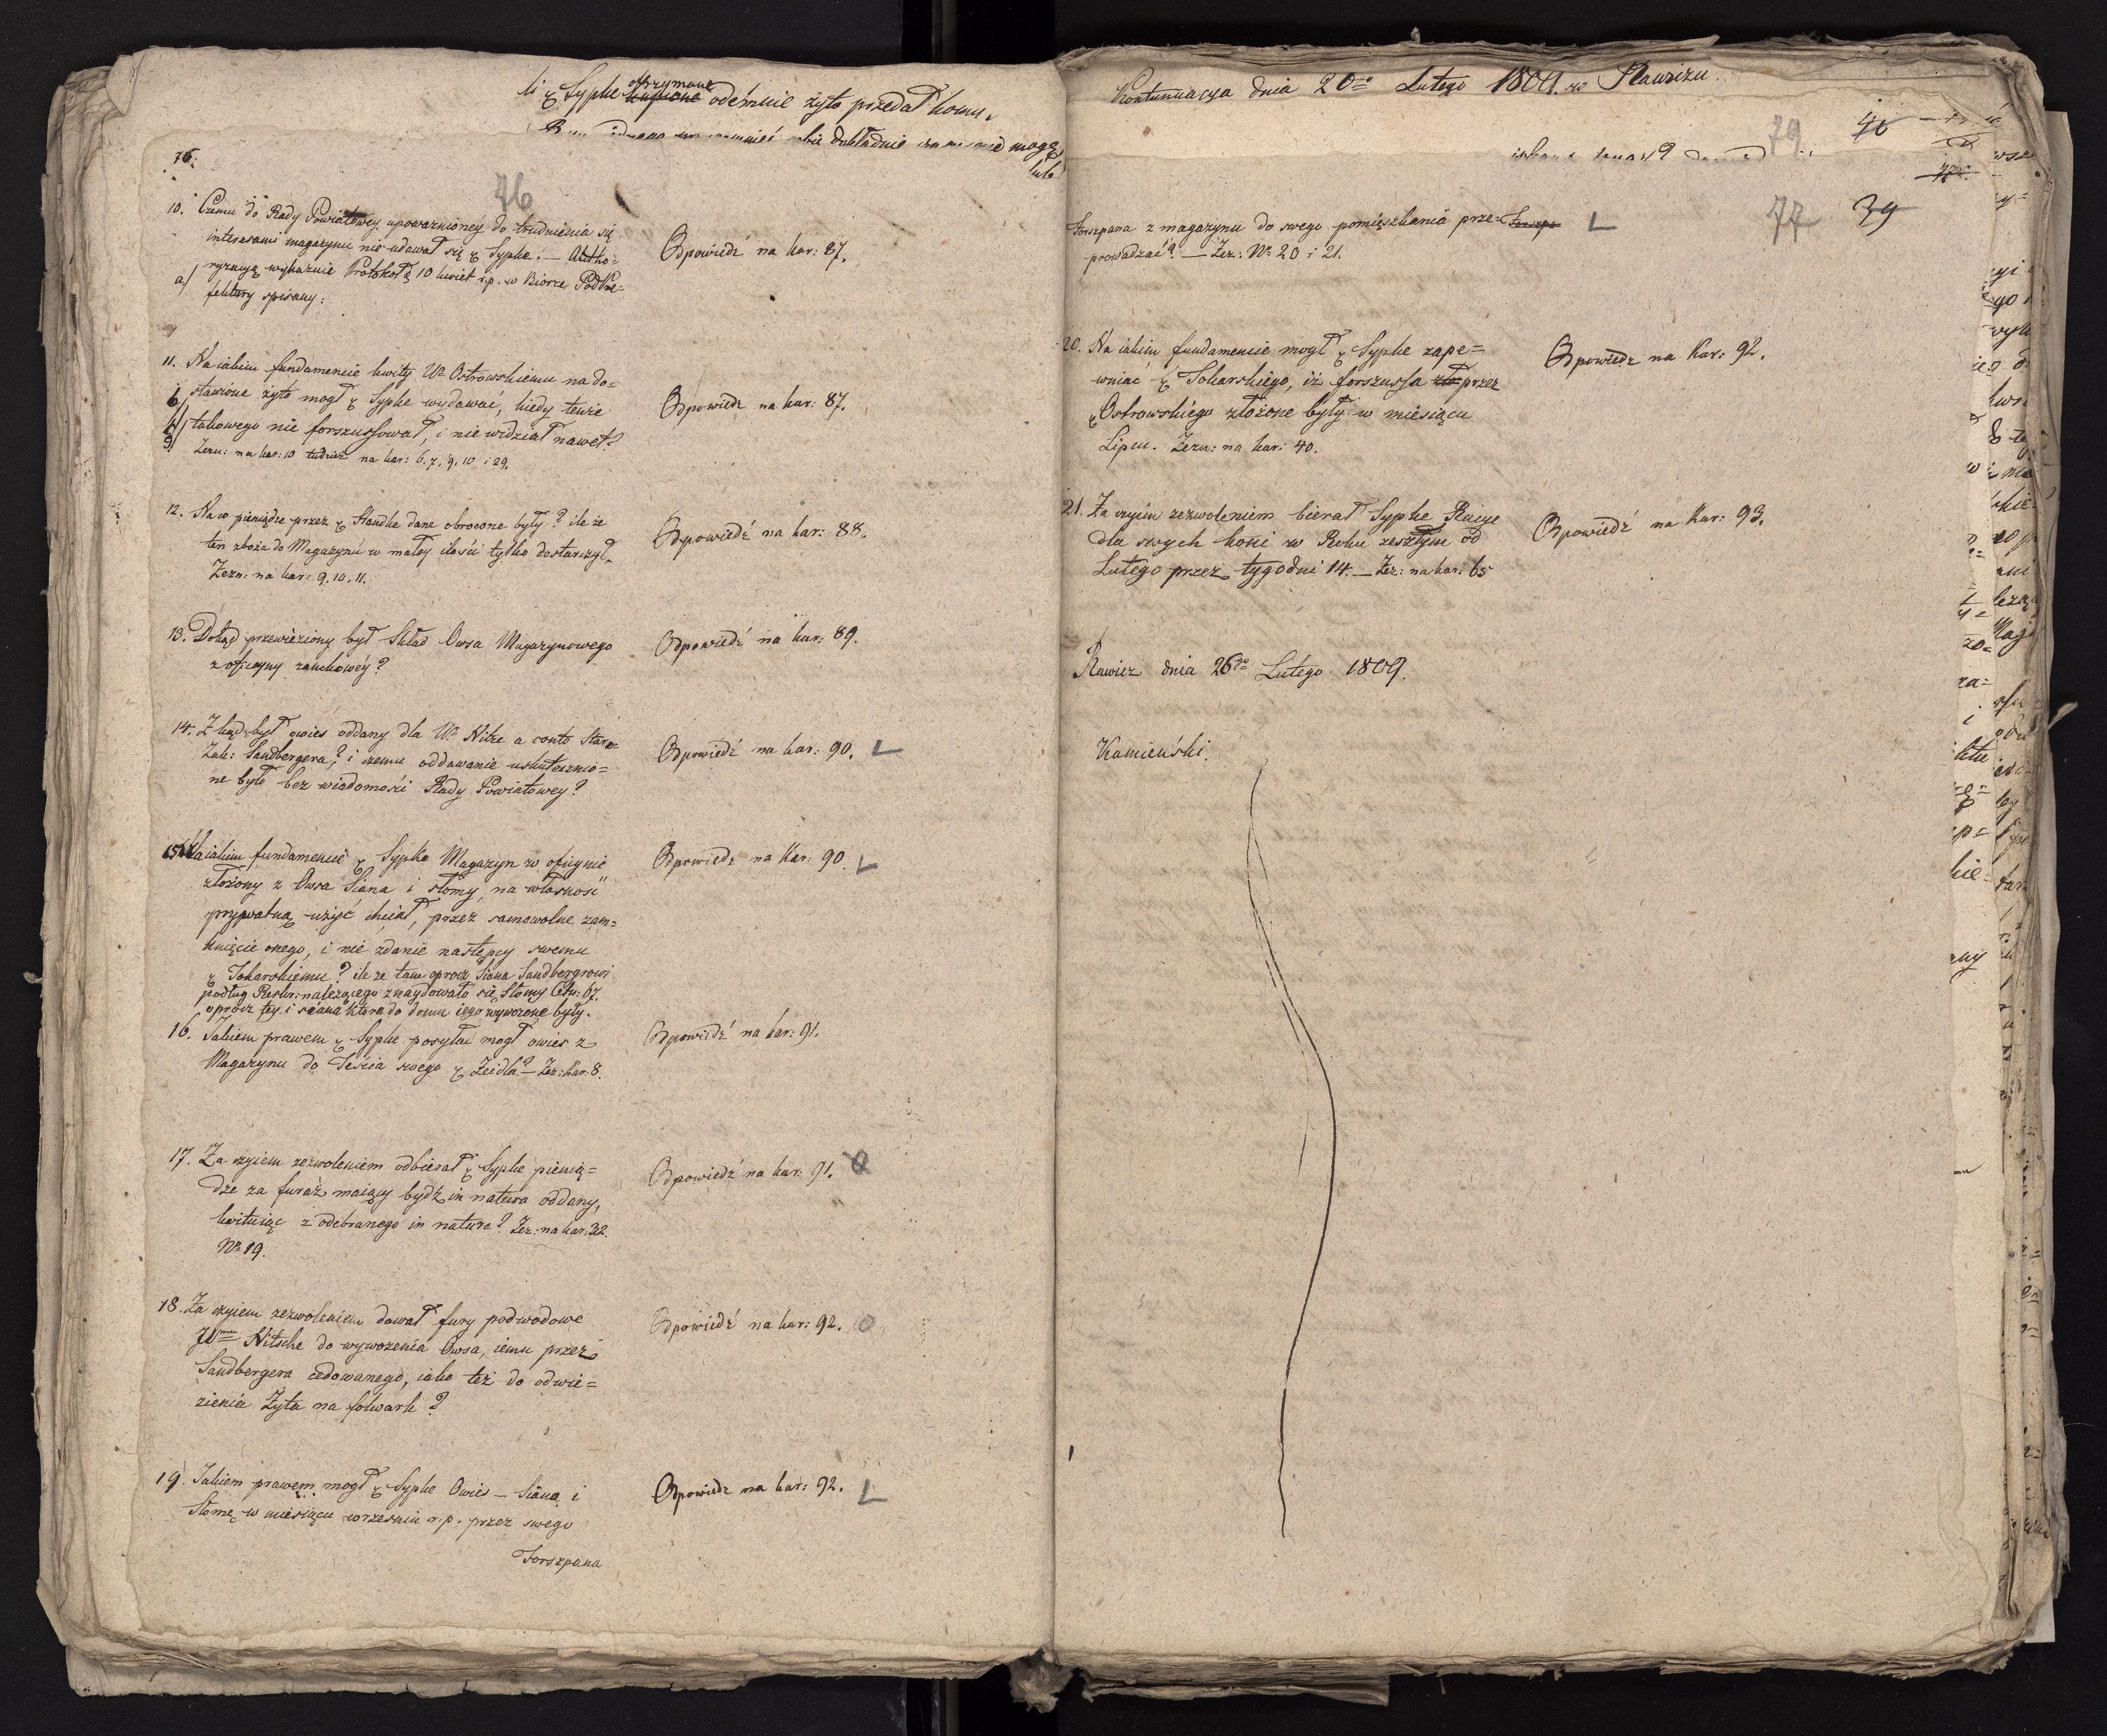 li z Sypke otrzymane
kupione odemnie żyto przedał komu,
dokładnie mogę
lub
76.
76
10. Czemu do Rady Powiatowey upoważnioney do trudnienia się
interesami magazynu nie udawał się z Sypke. — Autho-
ryzacyą wykazuie Protokołę 10 kwiet r.p. w Biorze PodPre-
a) fektury spisany:
Odpowiedź na kar: 87.
11. Na iakim fundamencie kwity Ur Ostrowskiemu na do-
stawione żyto mogł z Sypke wydawać, kiedy tenże
takowego nie forszussował, i nie widział nawet?
Zezn: na kar: 10 tudziesz na kar: 6. 7. 9. 10 i 29.
Odpowiedz na kar: 87.
12. Na co pieniądze przez z Standke dane obrocone były? ile że
ten zboża do Magazynu w małey ilości tylko dostarczył.
Zezn: na kar: 9. 10. 11.
Odpowiedź na kar: 88.
13. Dokąd przewieziony był Skład Owsa Magazynowego
z oficyny zamkowéy?
Odpowiedź na kar: 89.
14. Zkąd był owies oddany dla Ur Nitze a conto Staro-
Zak: Sandbergera? i czemu oddawanie uskutecznio-
ne było bez wiadomości Rady Powiatowey?
Odpowiedź na kar: 90. L
15. Na iakim fundamencie z Sypke Magazyn w oficynie
złożony z Owsa Siana i słomy, na własność
prywatną użyć chciał, przez samowolne zam-
knięcie onego, i nie zdanie następcy swemu
z Tokarskiemu? ile że tam oprocz Siana Sandbergrowi
podług Reskr: należącego znaydowało się Słomy Cetn: 67.
oprocz tey i siana które do domu iego wywozone były.
Odpowiedz na Kar: 90. L
16. Jakiem prawem z Sypke posyłać mogł owies z
Magazynu do Teścia swego z Zeidla? — Zez: Kar: 8.
Odpowiedź na kar: 91.
17. Za czyiem zezwoleniem odbierał z Sypke pienią-
dze za furaż maiący bydź in natura oddany,
kwituiąc z odebranego in natura? Zez: na kar: 32.
Nr 19.
Odpowiedź na kar: 91.
18. Za czyiem zezwoleniem dawał fury podwodowe
Nitsche do wywozenia Owsa, iemu przez
Sandbergera cedowanego, iako też do odwie-
zienia Żyta na folwark?
Odpowiedź na kar: 92. O
19. Jakiem prawem mogł z Sypke Owies — Siana i
Słomę w miesiącu wrześniu r.p. przez swego
Forszpana
Odpowiedz na kar: 92. L
Kontunuacya dnia 20o Lutego 1809. w Rawiczu.
79
40
77
39
Forszpana z magazynu do swego pomięszkania prze- Forszpa L
prowadzać? — Zez: Nr 20 i 21.
20. Na iakim fundamencie mogł z Sypke zape-
wniac z Tokarskiego, iż forszussa zło przez
z Ostrowskiego złożone były w miesiącu
Lipcu. Zezn: na kar: 40.
Odpowiedz na Kar: 92.
21. Za czyim zezwoleniem bierał Sypke Racye
dla swych koni w Roku zeszłym od
Lutego przez tygodni 14. — Zez: na kar: 65
Odpowiedź na Kar: 93.
Rawicz dnia 26go Lutego 1809.
Kamieński.